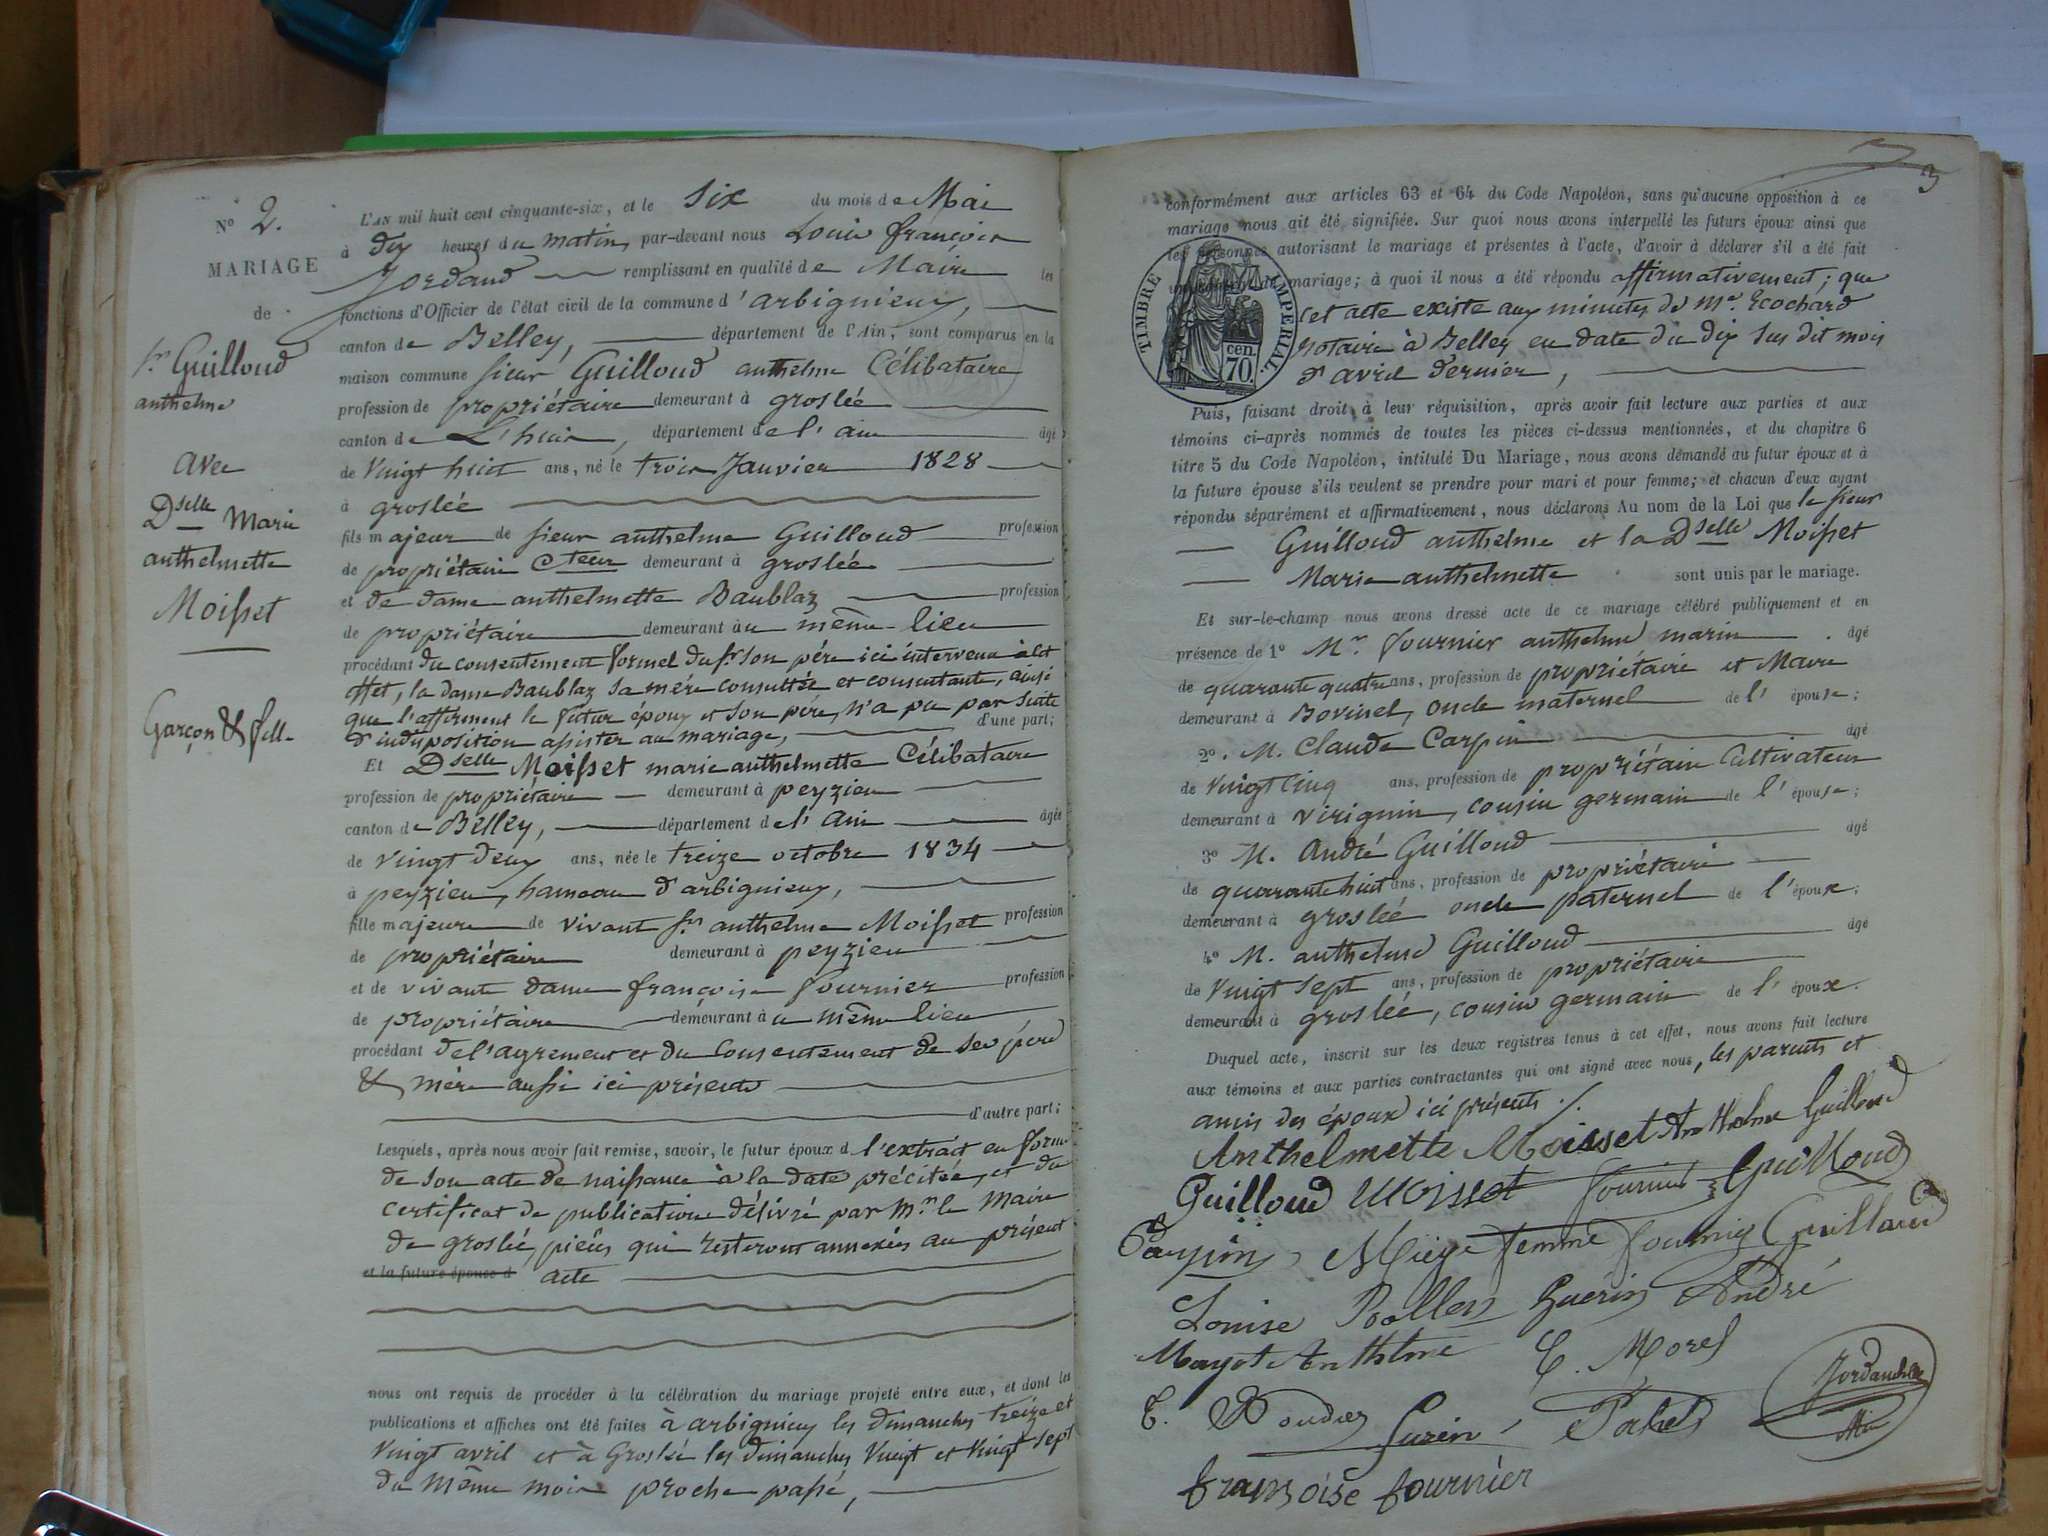 N° 2.
MARIAGE
de
Sr Guilloud
anthelme
avec
Dselle Marie
anthelmette
Moisset
Garçon & fille
L'AN mil huit cent cinquante-six, et le six du mois de Mai
à dix heures du matin, par-devant nous Louis françois
Jordand remplissant en qualité de Maire les
fonctions d'Officier de l'état civil de la commune d'arbignieux,
canton de Belley, département de l'Ain, sont comparus en la
maison commune sieur Guilloud anthelme Célibataire
profession de propriétaire demeurant à groslée
canton de L'huis, département de l'ain âgé
de vingt huit ans, né le trois Janvier 1828
à groslée
fils majeur de sieur anthelme Guilloud profession
de propriétaire cteur demeurant à groslée
et de dame anthelmette Baublaz profession
de propriétaire demeurant au même lieu
procédant du consentement formel du sr son père ici intervenu à cet
effet, la dame Baublaz sa mère consultée et consentante, ainsi
que l'affirment le futur époux et son père, n'a pu par suite
d'indisposition assister au mariage, d'une part;
Et Dselle Moisset marie anthelmette Célibataire
profession de propriétaire demeurant à peyzieu
canton de Belley, département de l'Ain âgée
de vingt deux ans, née le treize octobre 1834
à peyzieu, hameau d'arbignieux,
fille majeure de vivant sr anthelme Moisset profession
de propriétaire demeurant à peyzieu
et de vivante dame françoise fournier profession
de propriétaire demeurant au même lieu
procédant de l'agrement et du consentement de ses père
& mère aussi ici présents
d'autre part;
Lesquels, après nous avoir fait remise, savoir, le futur époux d l'extrait en forme
de son acte de naissance à la date précitée, et du
certificat de publication délivré par Mr le Maire
de groslée, pièces qui resteront annexées au présent
et la future épouse d acte
nous ont requis de procéder à la célébration du mariage projeté entre eux, et dont les
publications et affiches ont été faites à arbignieux les dimanches treize et
vingt avril et à Groslée les dimanches vingt et vingt sept
du même mois proche passé,
3
conformément aux articles 63 et 64 du Code Napoléon, sans qu'aucune opposition à ce
mariage nous ait été signifiée. Sur quoi nous avons interpellé les futurs époux ainsi que
les personnes autorisant le mariage et présentes à l'acte, d'avoir à déclarer s'il a été fait
un contrat de mariage; à quoi il nous a été répondu affirmativement; que
cet acte existe aux minutes de Me Ecochard
notaire à Belley en date du dix sus dit mois
d'avril dernier,
TIMBRE IMPERIAL.
70 cen.
Puis, faisant droit à leur réquisition, après avoir fait lecture aux parties et aux
témoins ci-après nommés de toutes les pièces ci-dessus mentionnées, et du chapitre 6
titre 5 du Code Napoléon, intitulé Du Mariage, nous avons demandé au futur époux et à
la future épouse s'ils veulent se prendre pour mari et pour femme; et chacun d'eux ayant
répondu séparément et affirmativement, nous déclarons Au nom de la Loi que le sieur
Guilloud anthelme et la Dselle Moisset
Marie anthelmette sont unis par le mariage.
Et sur-le-champ nous avons dressé acte de ce mariage célébré publiquement et en
présence de 1° Mr fournier anthelme marin âgé
de quarante quatre ans, profession de propriétaire et Maire
demeurant à Bovinel, oncle maternel de l'épouse;
2°. M. Claude Carpin âgé
de vingt cinq ans, profession de propriétaire Cultivateur
demeurant à virignin, cousin germain de l'épouse;
3° M. André Guilloud âgé
de quarante huit ans, profession de propriétaire
demeurant à groslée oncle paternel de l'époux;
4° M. anthelme Guilloud âgé
de vingt sept ans, profession de propriétaire
demeurant à groslée, cousin germain de l'époux.
Duquel acte, inscrit sur les deux registres tenus à cet effet, nous avons fait lecture
aux témoins et aux parties contractantes qui ont signé avec nous, les parents et
amis des époux ici présents ./.
Anthelmette Moisset Anthelme Guilloud
Guilloud Moisset fournier Guilloud
Carpin Miège femme fournier Guillaud
Louise Rollen Guérin André
Mayot Anthelme C. Morel
C. Guérin
françoise fournier